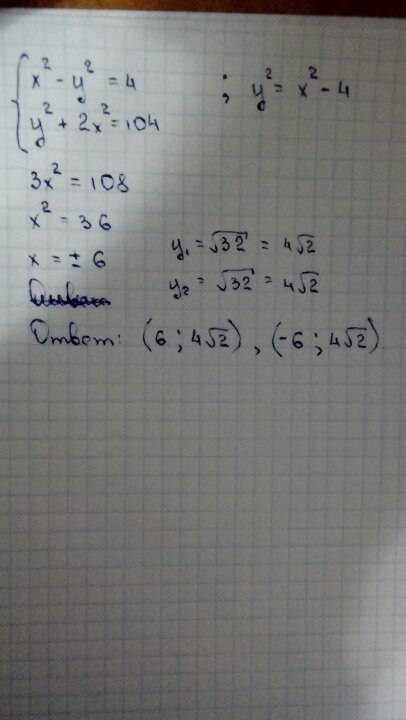 x² - y² = 4 ; y² = x² - 4
y² + 2x² = 104
3x² = 108
x² = 36
x = ± 6
y₁ = √32 = 4√2
y₂ = √32 = 4√2
Ответ: (6 ; 4√2), (-6 ; 4√2)